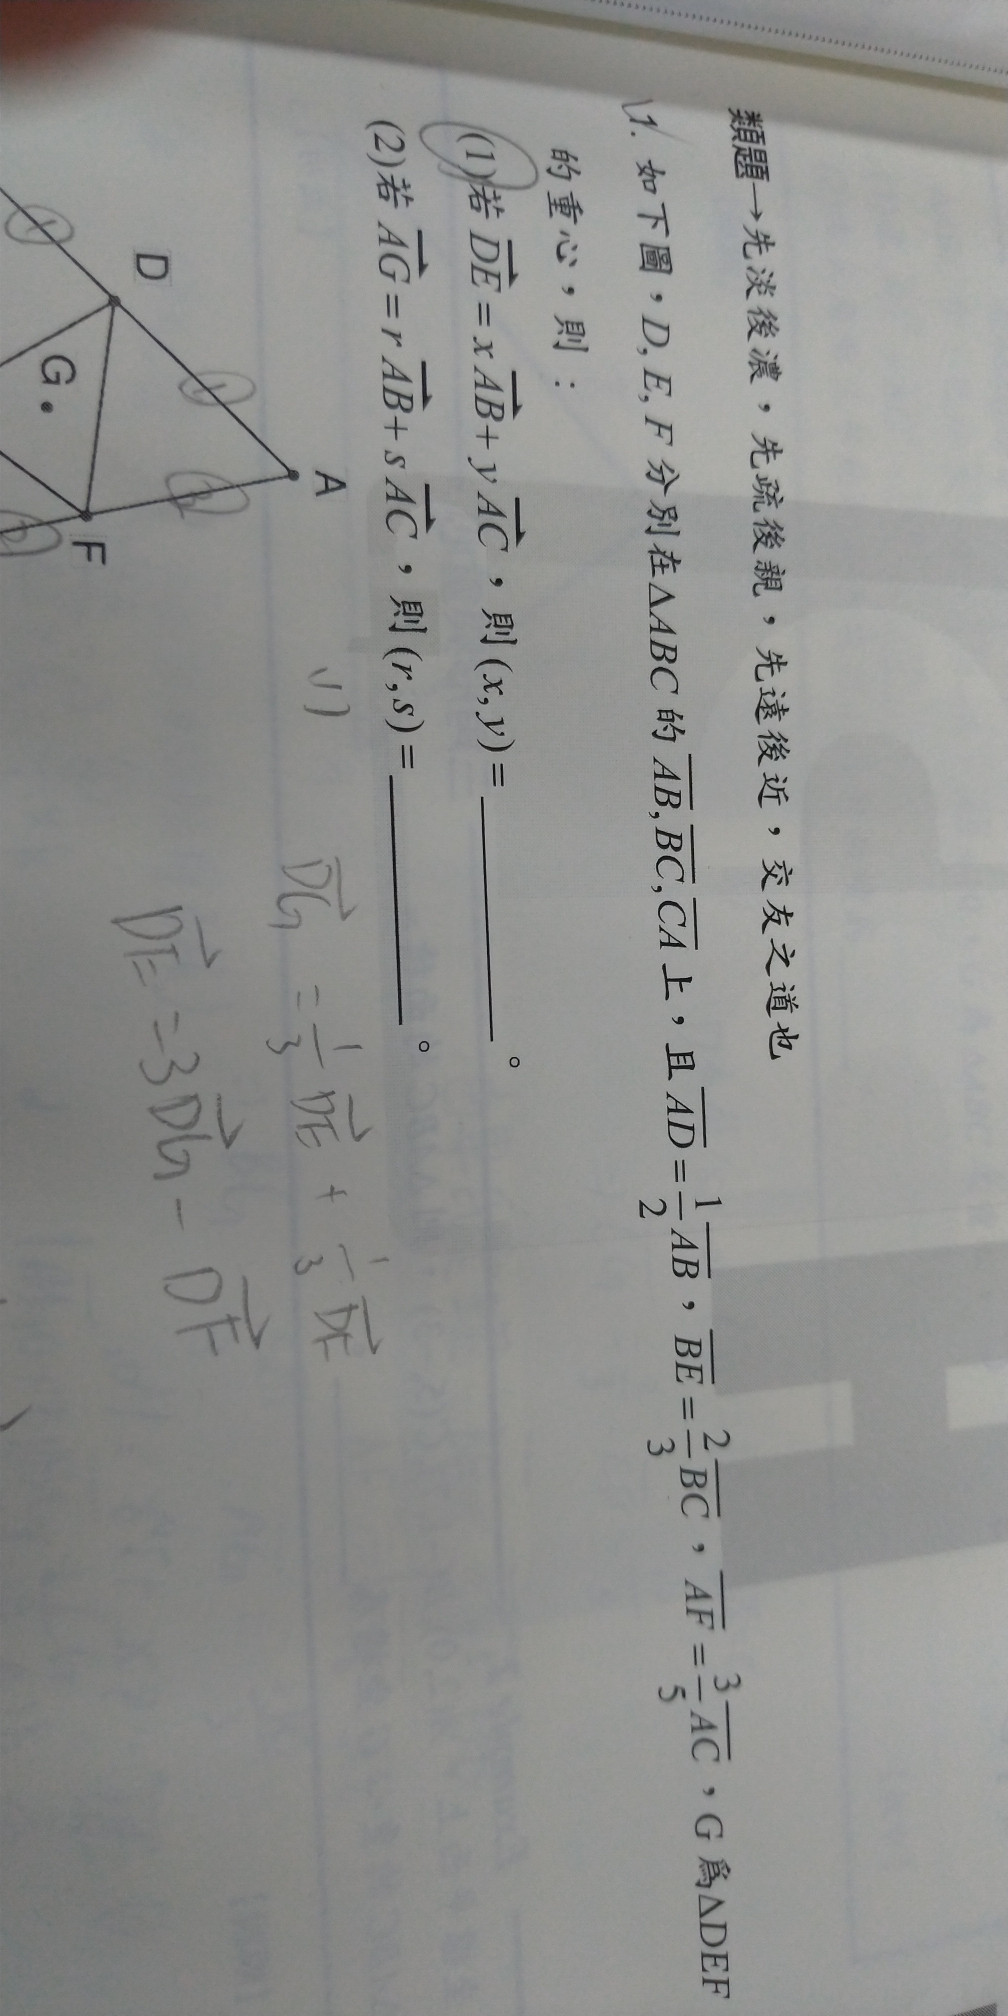 類題→先淡後濃，先疏後親，先遠後近，交友之道也
1. 如下圖，D, E, F 分別在△ABC 的 AB, BC, CA 上，且 AD = 1/2 AB，BE = 2/3 BC，AF = 3/5 AC，G 為△DEF
的重心，則：
(1)若 DE = x AB + y AC，則 (x, y) = ________。
(2)若 AG = r AB + s AC，則 (r, s) = ________。
DG = 1/3 DE + 1/3 DF
DE = 3DG − DF
A
D
F
G